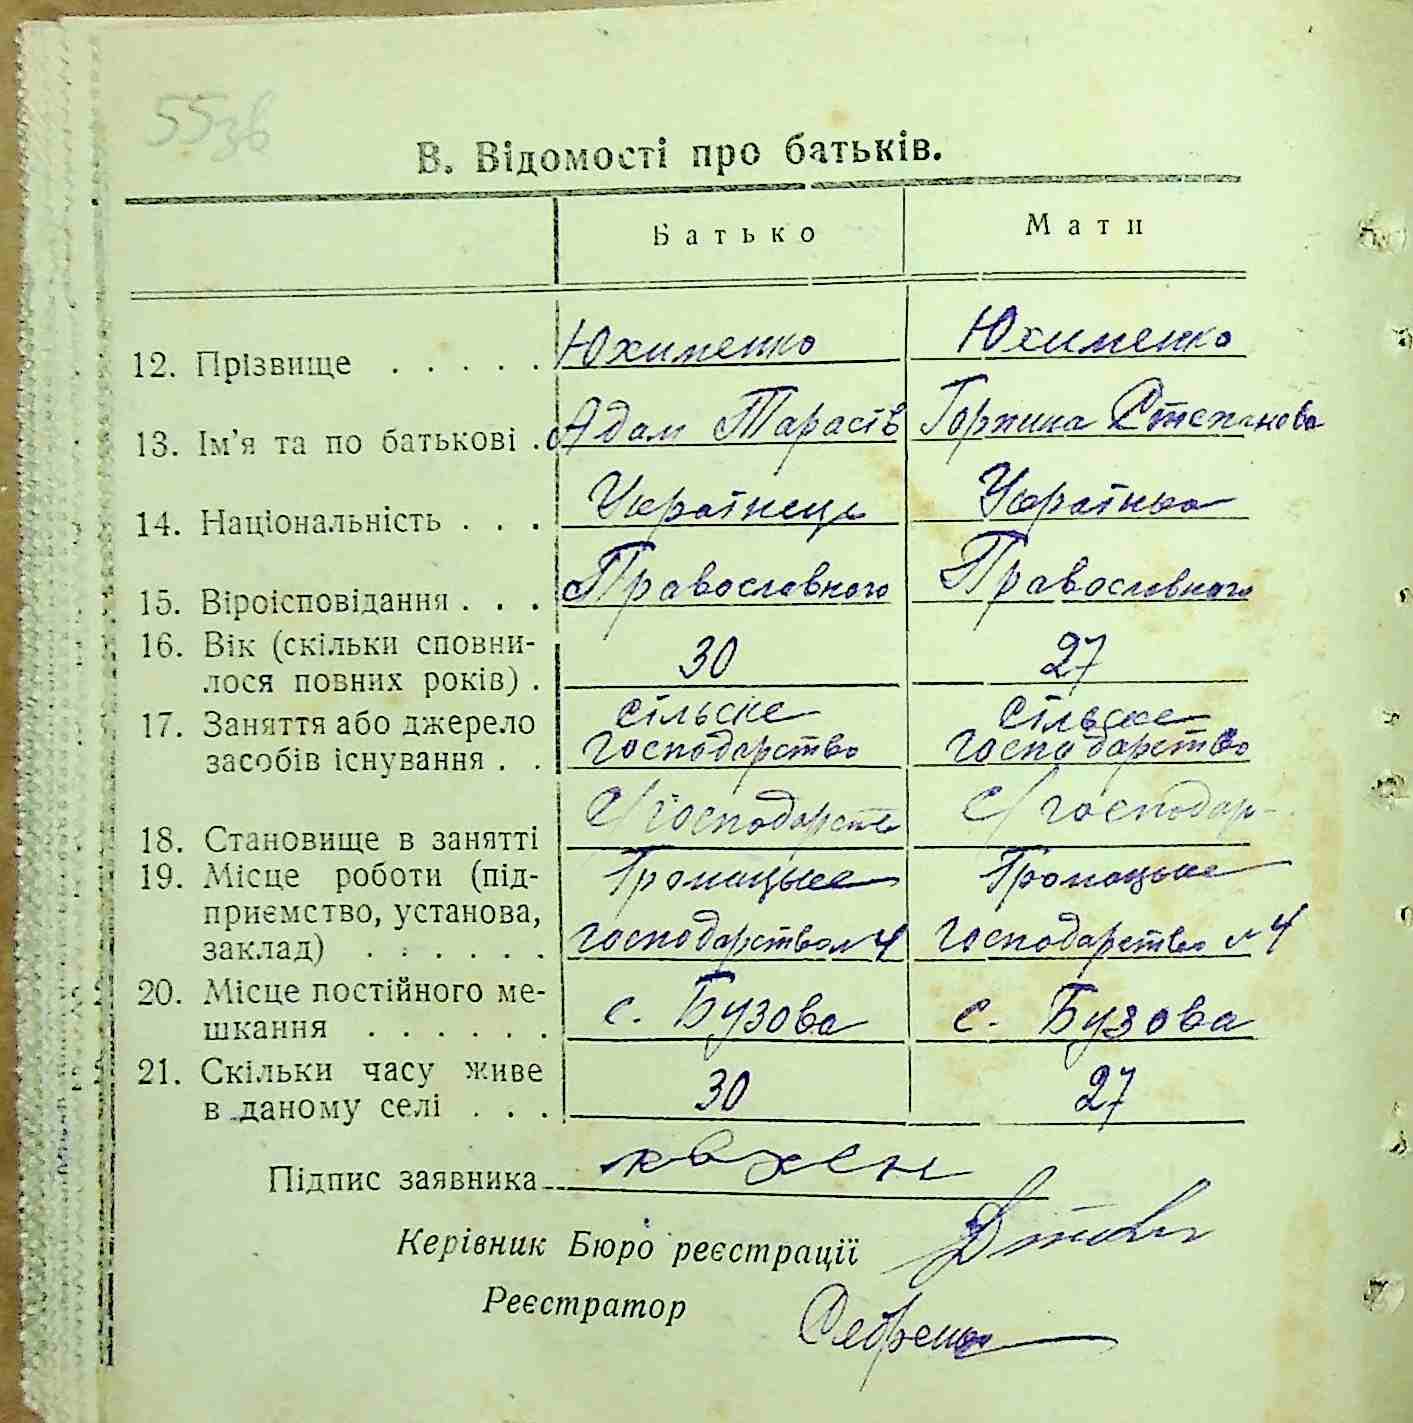 55зв
В. Відомості про батьків.
Батько Мати
12. Прізвище . . . . . Юхименко Юхименко
13. Ім'я та по батькові . Адам Тарасів Горпина Степанова
14. Національність . . . Українець Українка
15. Віроісповідання . . . Православного Православного
16. Вік (скільки сповни-
лося повних років) . 30 27
17. Заняття або джерело сільске сільске
засобів існування . . господарство господарство
18. Становище в занятті с/господарств с/господар-
19. Місце роботи (під- Громацьке Громацьке
приємство, установа,
заклад) . . . . . . господарство № 4 господарство № 4
20. Місце постійного ме-
шкання . . . . . . с. Бузова с. Бузова
21. Скільки часу живе
в даному селі . . . 30 27
Підпис заявника
Керівник Бюро реєстрації
Реєстратор